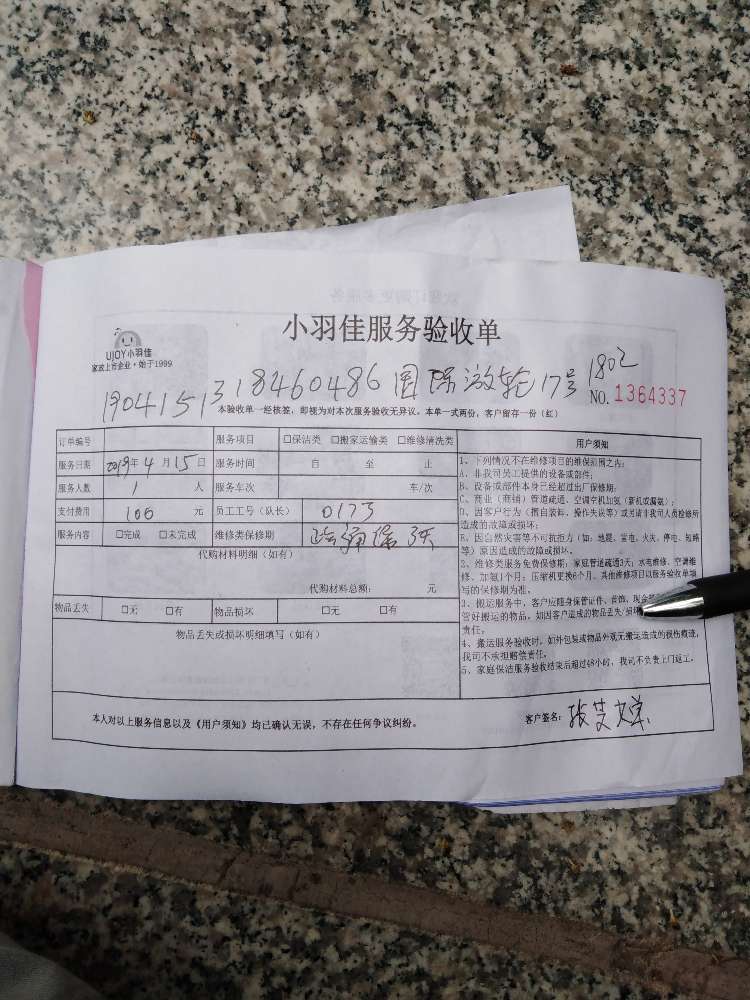 小羽佳服务验收单
UJOY小羽佳
家政上市企业·始于1999
1904151318460486 国际游轮17号1802
NO.1364337
本验收单一经核签,即视为对本次服务验收无异议。本单一式两份,客户留存一份(红)
订单编号 服务项目 □保洁类 □搬家运输类 □维修清洗类
服务日期 2019年4月15日 服务时间 自 至 止
服务人数 1 人 服务车次 车/次
支付费用 100 元 员工工号(队长) 0173
服务内容 □完成 □未完成 维修类保修期 疏通保3天
代购材料明细(如有)
代购材料总额: 元
物品丢失 □无 □有 物品损坏 □无 □有
物品丢失或损坏明细填写(如有)
用户须知
1、下列情况不在维修项目的维保范围之内:
A、非我司员工提供的设备或部件;
B、设备或部件本身已经超过出厂保修期;
C、商业(商铺)管道疏通、空调空机加氨(新机或漏氨);
D、因客户行为(擅自装卸、操作失误等)或另请非我司人员检修所
造成的故障或损坏;
E、因自然灾害等不可抗拒力(如:地震、雷电、火灾、停电、短路
等)原因造成的故障或损坏。
2、维修类服务免费保修期:家庭管道疏通3天;水电维修、空调维
修、加氨1个月;压缩机更换6个月。其他维修项目以服务验收单填
写的保修期为准。
3、搬运服务中,客户应随身保管证件、首饰、现金
管好搬运的物品,如因客户造成的物品丢失/损坏
责任。
4、搬运服务验收时,如外包装或物品外观无搬运造成的损伤痕迹,
我司不承担赔偿责任。
5、家庭保洁服务验收结束后超过48小时,我司不负责上门返工。
本人对以上服务信息以及《用户须知》均已确认无误,不存在任何争议纠纷。
客户签名: